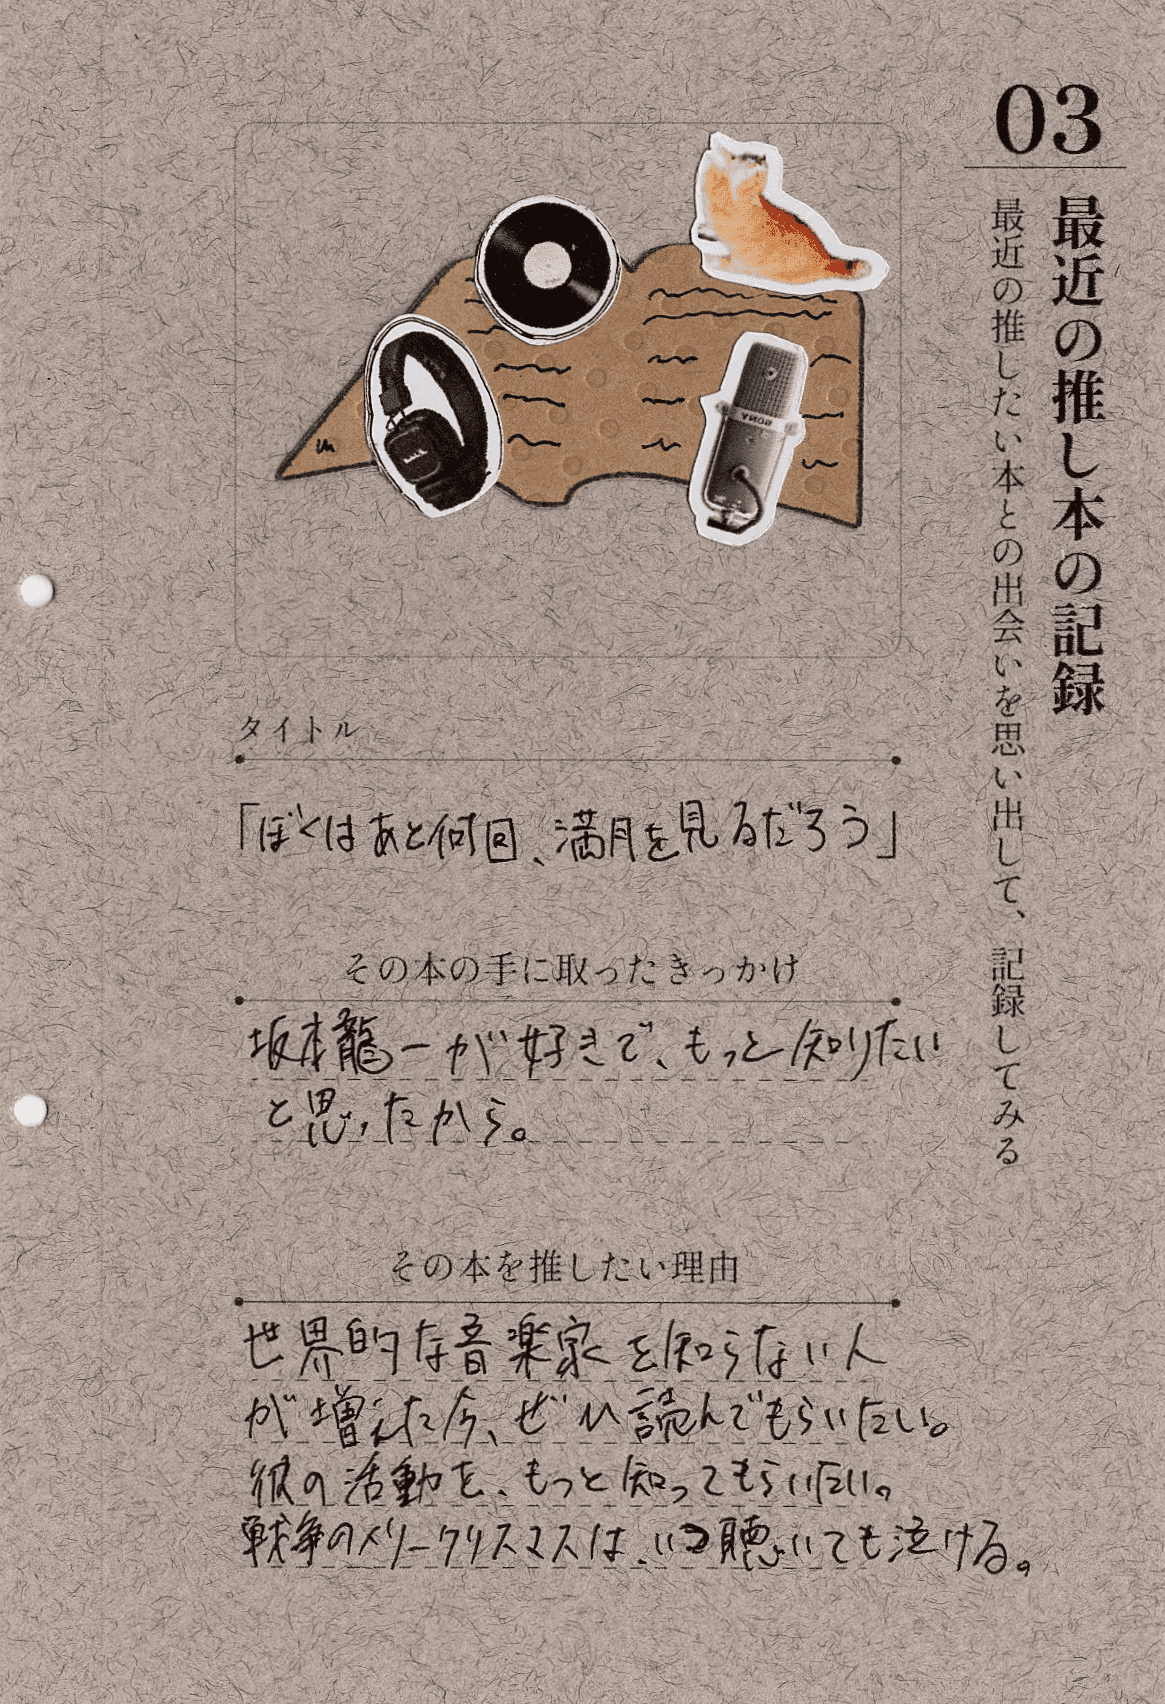 03
最近の推し本の記録
最近の推したい本との出会いを思い出して、記録してみる
SONY
タイトル
「ぼくはあと何回、満月を見るだろう」
その本の手に取ったきっかけ
坂本龍一が好きで、もっと知りたい
と思ったから。
その本を推したい理由
世界的な音楽家を知らない人
が増えた今、ぜひ読んでもらいたい。
彼の活動を、もっと知ってもらいたい。
戦争のメリークリスマスは、いつ聴いても泣ける。